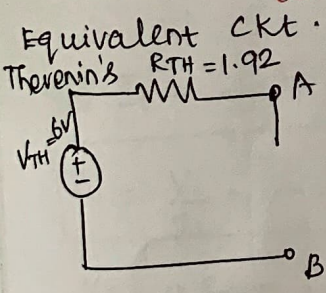 Equivalent Ckt.
Thevenin's RTH = 1.92
A
VTH = 6V
+
-
B